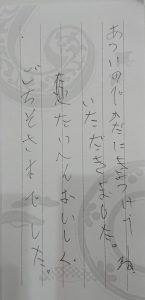 あついのでからだにきをつけて
いただきました。
たいへんおいしく
ごちそうさまでした。